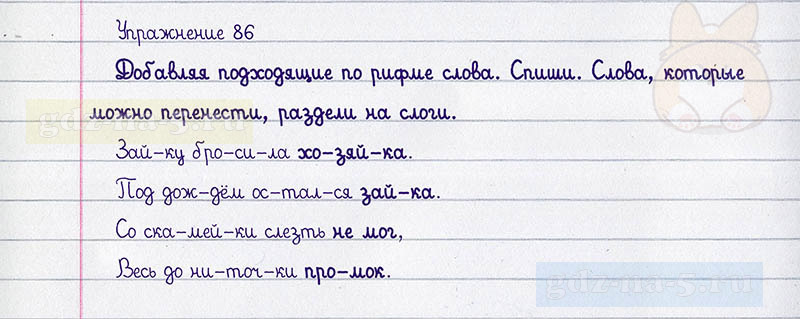 Упражнение 86
Добавляя подходящие по рифме слова. Спиши. Слова, которые
можно перенести, раздели на слоги.
gdz-na-5.ru
Зай-ку бро-си-ла хо-зяй-ка.
Под дож-дём ос-тал-ся зай-ка.
Со ска-мей-ки слезть не мог,
Весь до ни-точ-ки про-мок.
gdz-na-5.ru